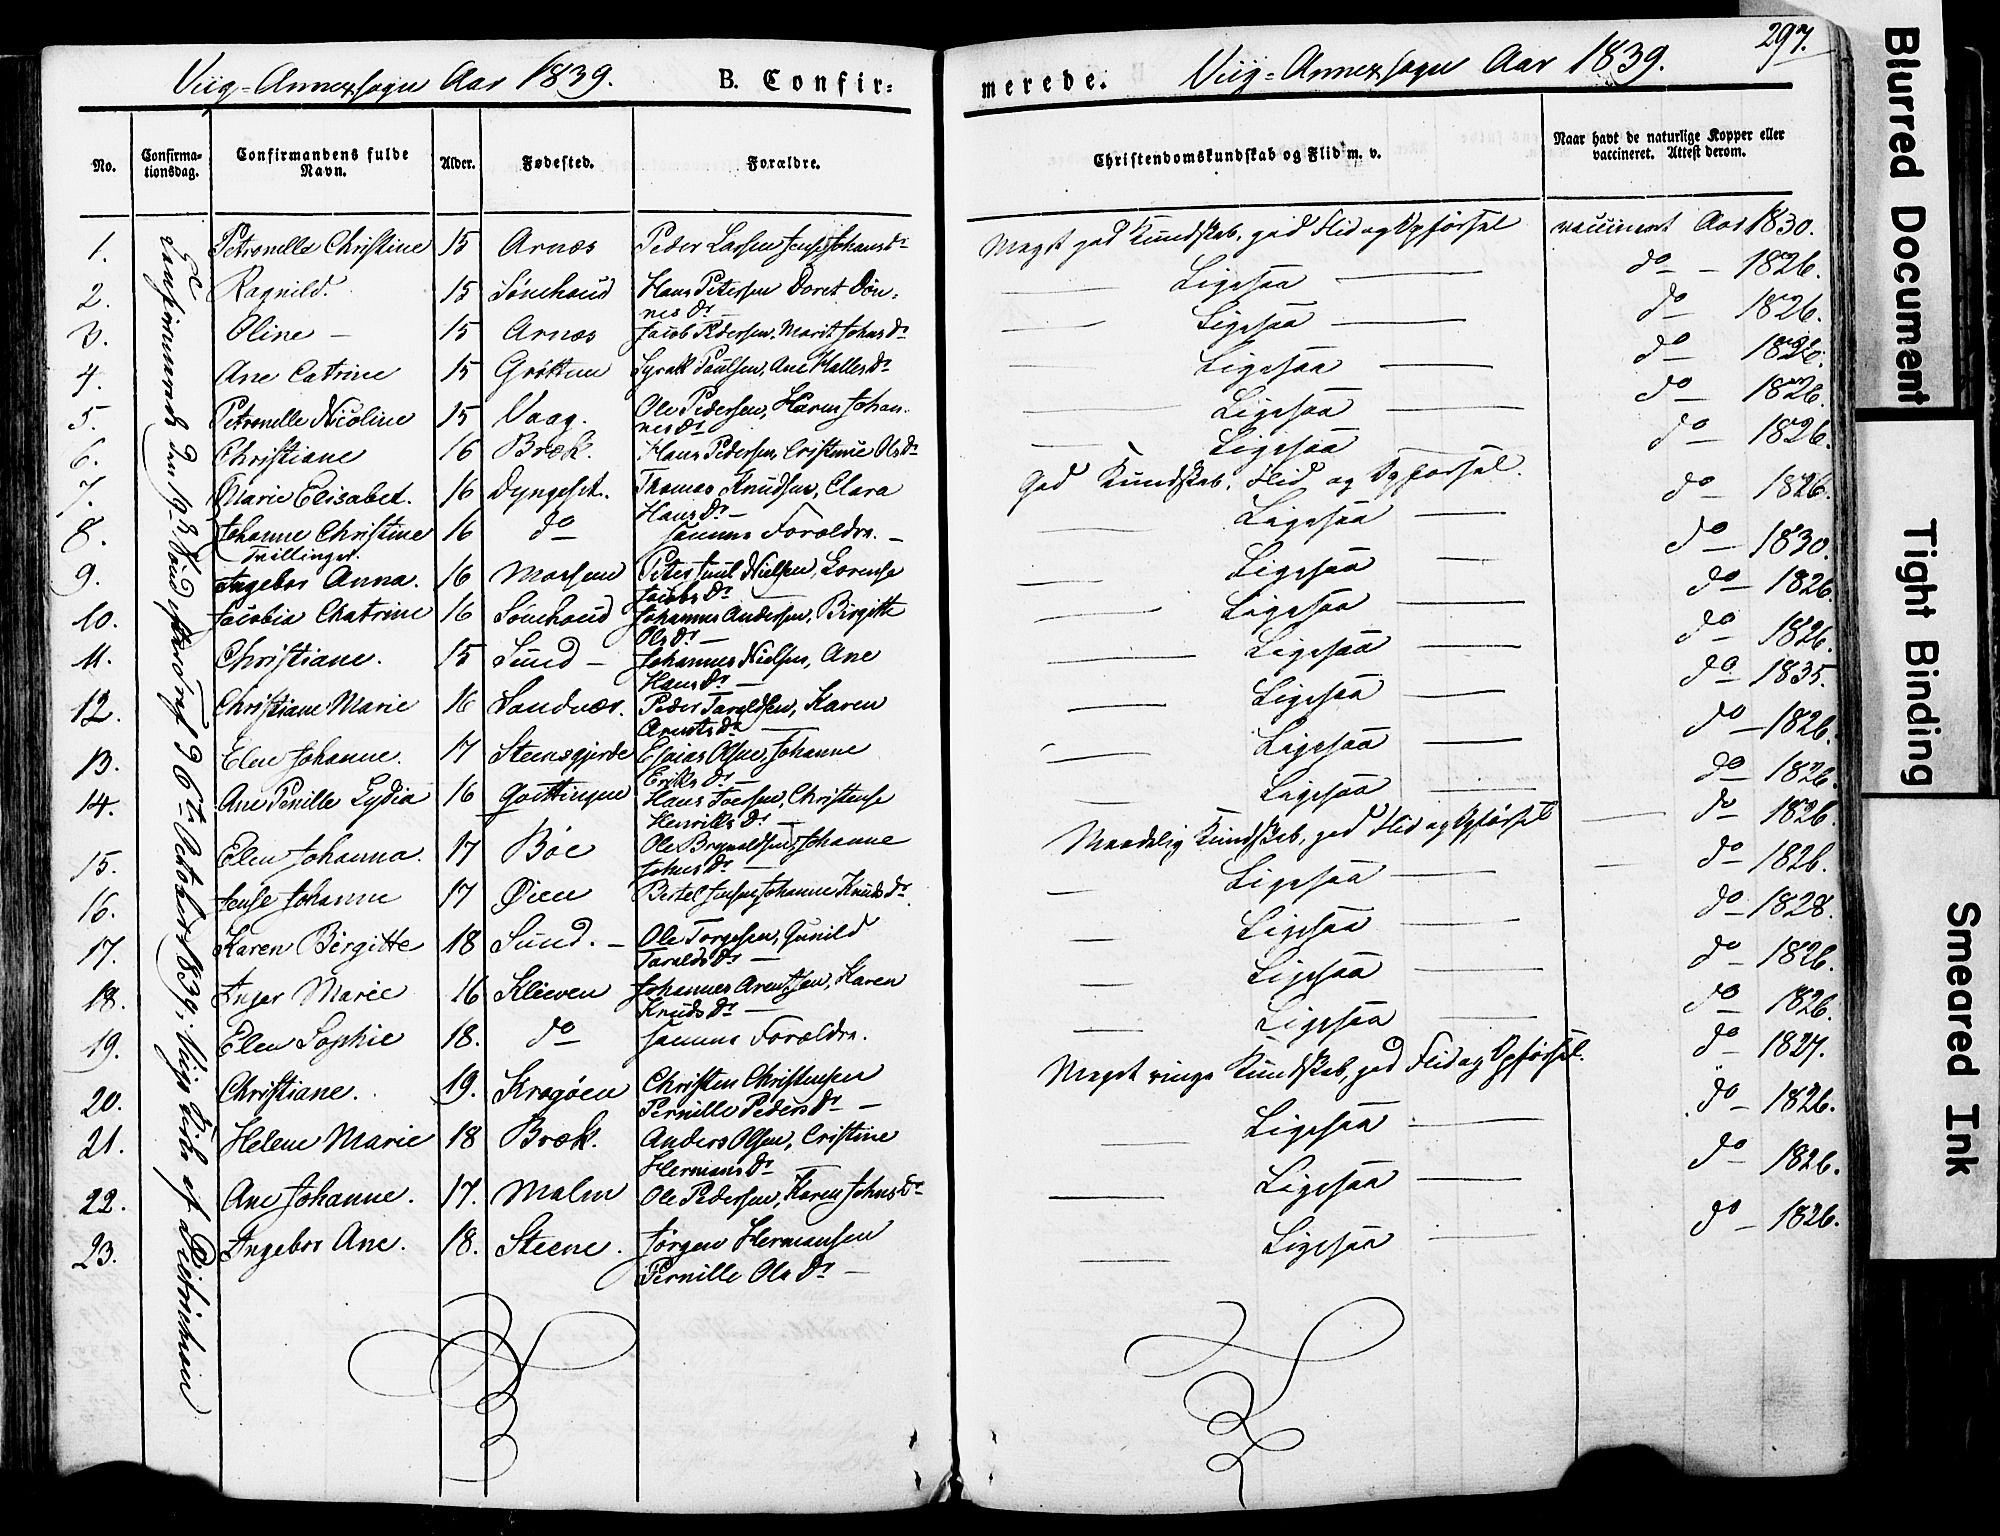 Viig-Annexsogn Aar 1839. B. Confir=
No. Confirmationsdag. Confirmandens fulde Navn. Alder. Fødested. Forældre.
Confirmerede den 19de Sønd. efter Tref. 6te October 1839, i Viigs Kirke af Dietrichson
1. Petronelle Christine 15 Arnæs Peder Larsen Johansdr
2. Ragnild. 15 Sønehoud Hans Petersen Doret Dön=
nesdr
3. Oline – 15 Arnæs Jacob Pedersen, Marit Johnsdr
4. Ane Catrine 15 Grøttem Paulsen, Ane Hallesdr
5. Petronelle Nicoline 15 Vaag. Ole Pedersen, Haren Johan-
nesdr
6. Christiane 16 Bræk. Hans Pedersen, Cristine Olsdr
7. Marie Elisabet. 16 Dyngeset. Thomas Knudsen, Clara
Hansdr –
8. Johanne Christine 16 do samme Forældre. –
Tvillinger.
9. Ingebor Anna. 16 Peter Juul Nielsen, Lorense
Jacobsdr –
10. Jacobia Chatrine 16 Sønehoud Johannes Andersen, Birgitte
Olsdr –
11. Christiane. 15 Sund – Johannes Nielsen, Ane
Hansdr –
12. Christiane Marie 16 Sandvær. Peder Taraldsen, Karen
Arentsdr
13. Elen Johanne. 17 Steensgjerde Esaias Olsen, Johanne
Eriksdr –
14. Ane Penille Lydia 16 Hans Christense
Henriksdr –
15. Elen Johanna. 17 Böe Ole Brynaldsen, Johanne
Johnsdr –
16. Jense Johanne 17 Øien Bertel Jensen Johanne Knudsdr
17. Karen Birgitte 18 Sund. – Ole Torgesen, Gunild
Taraldsdr –
18. Inger Marie 16 Kleeven Johannes Arentsen, Karen
Knudsdr –
19. Elen Sophie 18. do samme Forældre.
20. Christiane. 19. Kragöen Christen Christensen
Pernille Pedersdr –
21. Helene Marie 18 Bræk. Anders Olsen, Cristine
Hermansdr
22. Ane Johanne. 17. Malm Ole Pedersen, Karen Johnsdr
23. Ingebor Ane. 18. Steene. Jørgen Hermansen
Pernille Olsdr –
merede. Viig-Annexsogn Aar 1839. 297.
Christendomskundskab og Flid m. v. Naar havt de naturlige Kopper eller vaccineret. Attest derom.
Meget god Kundskab, god Flid og Opførsel vaccineret Aar 1830.
Ligesaa do – 1826.
Ligesaa do – 1826.
Ligesaa do – 1826.
Ligesaa do – 1826.
Ligesaa do – 1826.
God Kundskab, Flid og Opførsel. do – 1826.
Ligesaa do – 1830.
Ligesaa do – 1826.
Ligesaa do – 1826.
Ligesaa do – 1835.
Ligesaa do – 1826.
Ligesaa do – 1826.
Ligesaa do – 1826.
Maadelig Kundskab, god Flid og Opførsel do – 1826.
Ligesaa do – 1828.
Ligesaa do – 1826.
Ligesaa do – 1826.
Ligesaa do – 1827.
Meget ringe Kundskab, god Flid og Opførsel. do – 1826.
Ligesaa do – 1826.
Ligesaa do – 1826.
Ligesaa
Blurred Document
Tight Binding
Smeared Ink